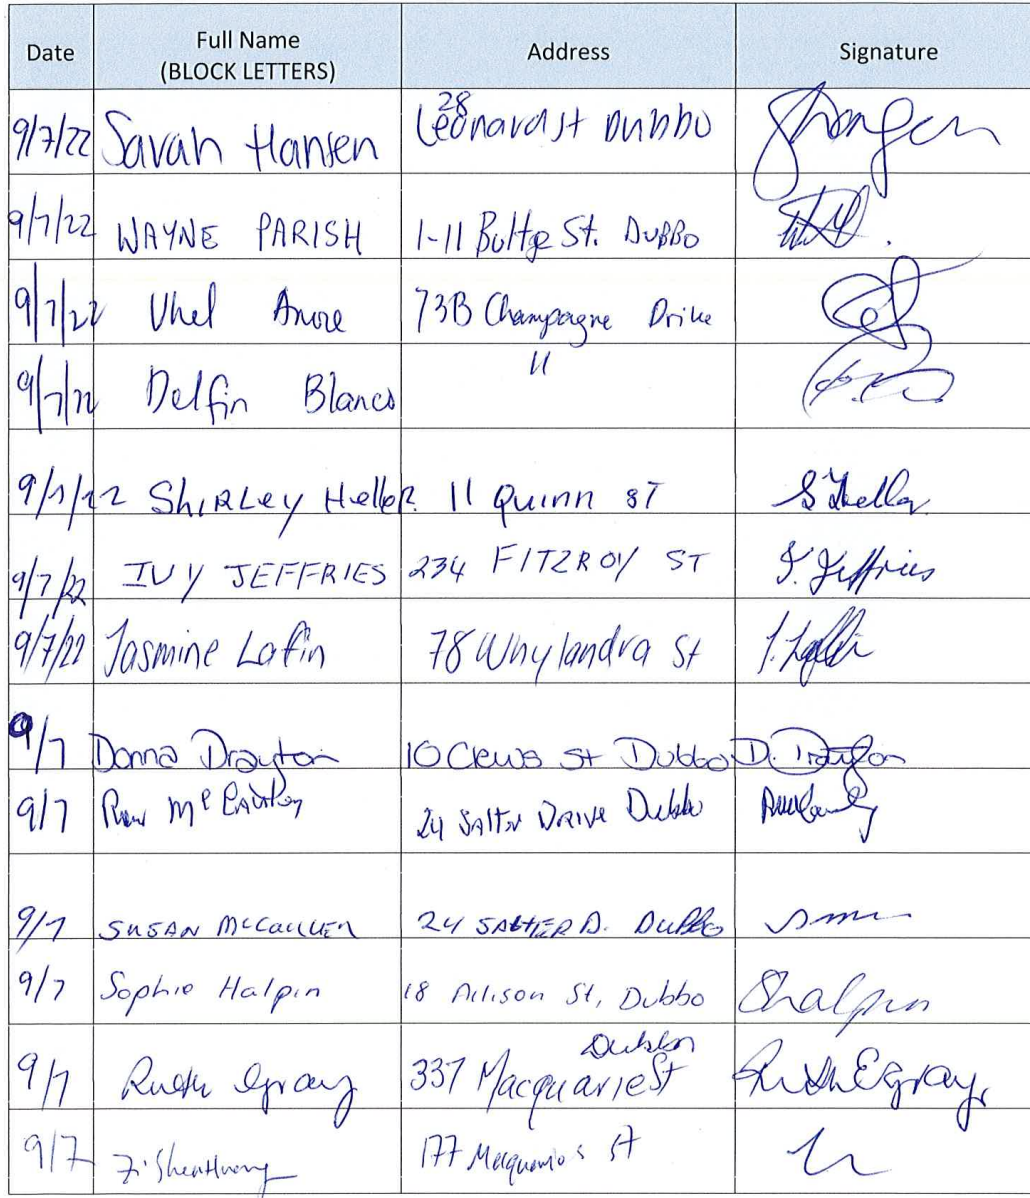 Date Full Name (BLOCK LETTERS) Address Signature
9/7/22 Sarah Hansen 28 Leonard St Dubbo
9/7/22 WAYNE PARISH 1-11 Bultje St. DUBBO
9/7/22 Uhel 73B Champagne Drive
9/7/22 Delfin Blanco 11
9/7/22 SHIRLEY Heller 11 Quinn ST S Heller
9/7/22 IVY JEFFRIES 234 FITZROY ST I. Jeffries
9/7/22 Jasmine Lafin 78 Whylandra St J. Lafin
9/7 Donna Drayton 10 Clews St Dubbo D. Drayton
9/7 24 Salter DRIVE Dubbo
9/7 SUSAN 24 SALTER D. DUBBO
9/7 Sophie Halpin 18 Allison St, Dubbo SHalpin
9/7 Ruth Gray 337 Macquarie St Dubbo Ruth E Gray
9/7 177 Macquarie St